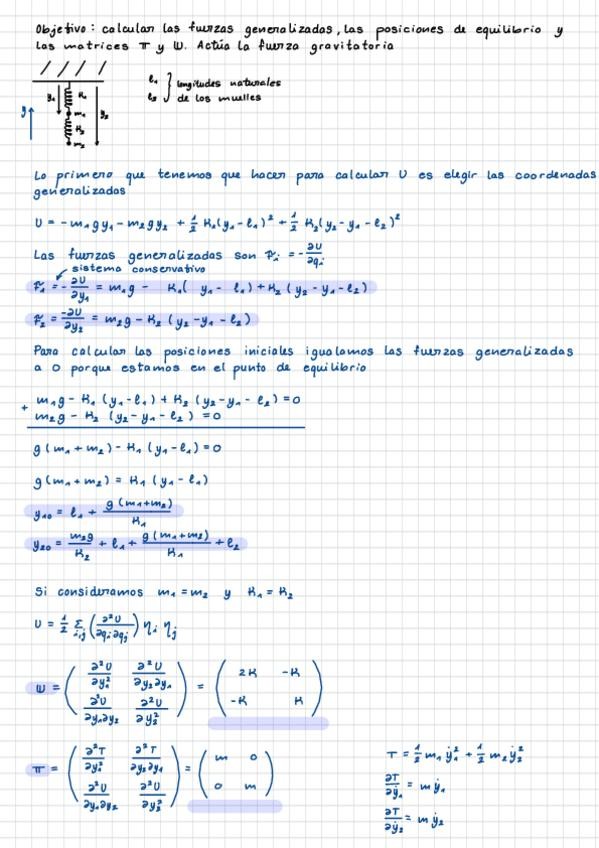 Objetivo: calcular las fuerzas generalizadas, las posiciones de equilibrio y
las matrices T y U. Actúa la fuerza gravitatoria
ℓ₁ } longitudes naturales
ℓ₂ } de los muelles
y
y₁
K₁
m₁
K₂
m₂
y₂
Lo primero que tenemos que hacer para calcular U es elegir las coordenadas
generalizadas
U = -m₁gy₁ - m₂gy₂ + 1/2 K₁(y₁-ℓ₁)² + 1/2 K₂(y₂-y₁-ℓ₂)²
Las fuerzas generalizadas son Fᵢ = -∂U/∂qᵢ
sistema conservativo
F₁ = -∂U/∂y₁ = m₁g - K₁(y₁-ℓ₁) + K₂(y₂-y₁-ℓ₂)
F₂ = -∂U/∂y₂ = m₂g - K₂(y₂-y₁-ℓ₂)
Para calcular las posiciones iniciales igualamos las fuerzas generalizadas
a 0 porque estamos en el punto de equilibrio
+ m₁g - K₁(y₁-ℓ₁) + K₂(y₂-y₁-ℓ₂) = 0
m₂g - K₂(y₂-y₁-ℓ₂) = 0
g(m₁+m₂) - K₁(y₁-ℓ₁) = 0
g(m₁+m₂) = K₁(y₁-ℓ₁)
y₁₀ = ℓ₁ + g(m₁+m₂)/K₁
y₂₀ = m₂g/K₂ + ℓ₁ + g(m₁+m₂)/K₁ + ℓ₂
Si consideramos m₁=m₂ y K₁=K₂
U = 1/2 Σᵢ,ⱼ (∂²U/∂qᵢ∂qⱼ) ηᵢ ηⱼ
U = (∂²U/∂y₁² ∂²U/∂y₂∂y₁ ; ∂²U/∂y₁∂y₂ ∂²U/∂y₂²) = (2K -K ; -K K)
T = (∂²T/∂y₁² ∂²T/∂y₂∂y₁ ; ∂²U/∂y₁∂y₂ ∂²U/∂y₂²) = (m 0 ; 0 m)
T = 1/2 m₁ẏ₁² + 1/2 m₂ẏ₂²
∂T/∂ẏ₁ = mẏ₁
∂T/∂ẏ₂ = mẏ₂